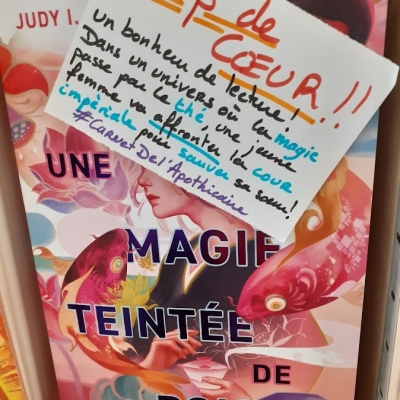 JUDY I.
de
CŒUR!!
un bonheur de lecture!
Dans un univers où la magie
passe par le thé, une jeune
femme va affronter la cour
impériale pour sauver sa sœur!
#CarnetDel'Apothicaire
UNE
MAGIE
TEINTÉE
DE